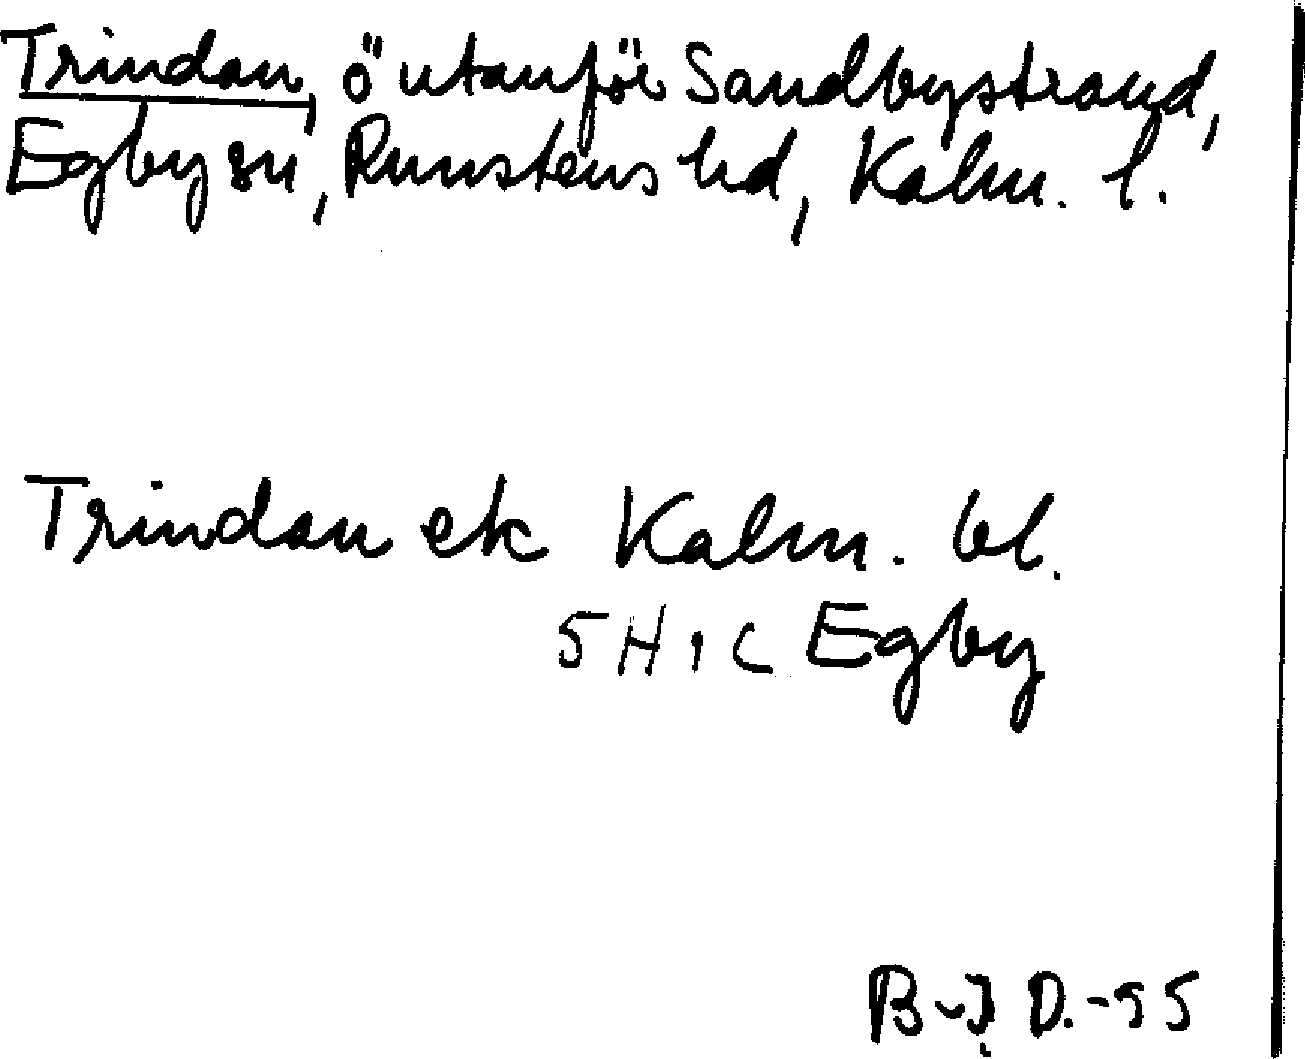 Trindan, ö utanför Sandbystrand,
Egby sn, Runstens hd, Kalm. l.
Trindan ek Kalm. bl.
5H1c Egby
B-J D.-55